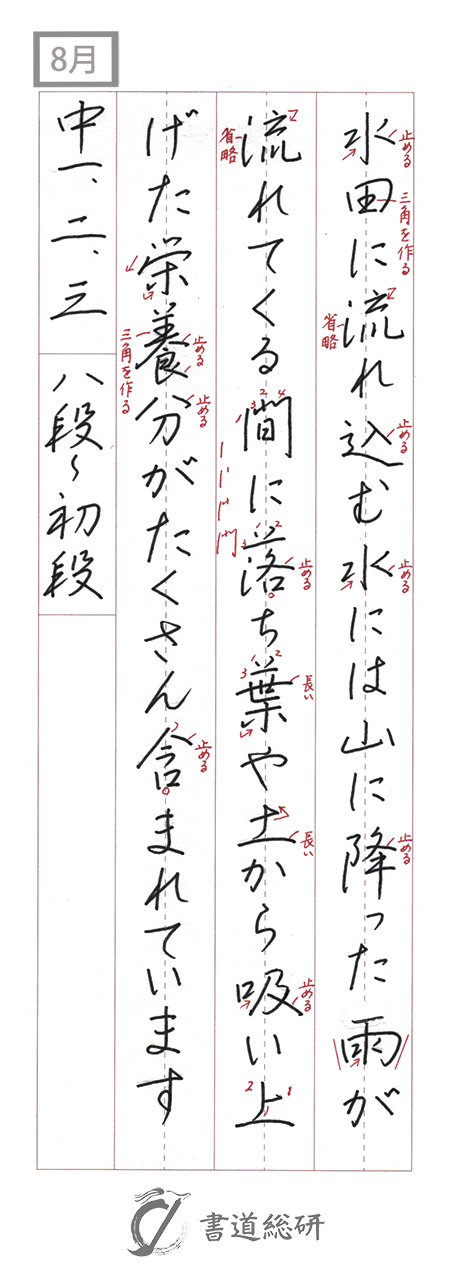 8月
水田に流れ込む水には山に降った雨が
止める
三角を作る
省略
止める
止める
止める
流れてくる間に落ち葉や土から吸い上
省略
止める
長い
長い
止める
げた栄養分がたくさん含まれています
三角を作る
止める
止める
止める
中一、二、三
八段〜初段
書道総研